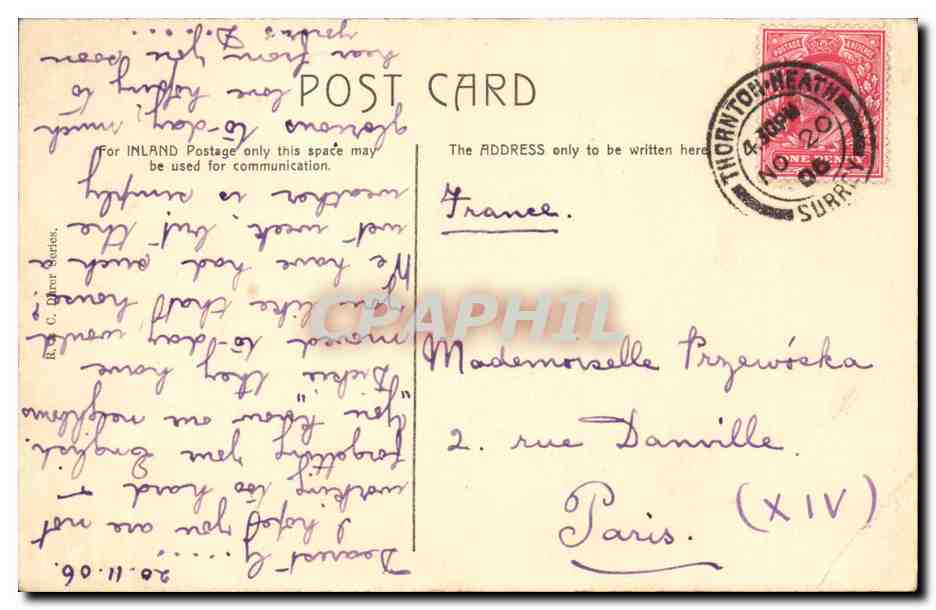 POST CARD
For INLAND Postage only this space may
be used for communication.
The ADDRESS only to be written here
POSTAGE REVENUE
ONE PENNY
THORNTON-HEATH
4.30PM
NO 20
06
SURREY
R. & C. Dürer Series.
France.
Mademoiselle Przewóska
2. rue Danville.
Paris.
(XIV)
20.11.06.
Dearest G.....
I hope you are not
working too hard &
forgetting your English
"You know our neighbours
Dickie" they have
moved to-day, would
you like that house?
We have had such a
wet week but the
weather is simply
glorious to-day, much
love hoping to
hear from you soon
yours D.J....
CPAPHIL